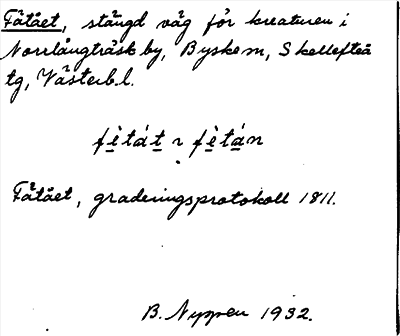 Fätået, stängd väg för kreaturen i
Norrlångträsk by, Byske sn, Skellefteå
tg, Västerb. l.
fè̱tát̠ ~ fè̱tá̱n
Fätået, graderingsprotokoll 1811.
B. Nyppen 1932.